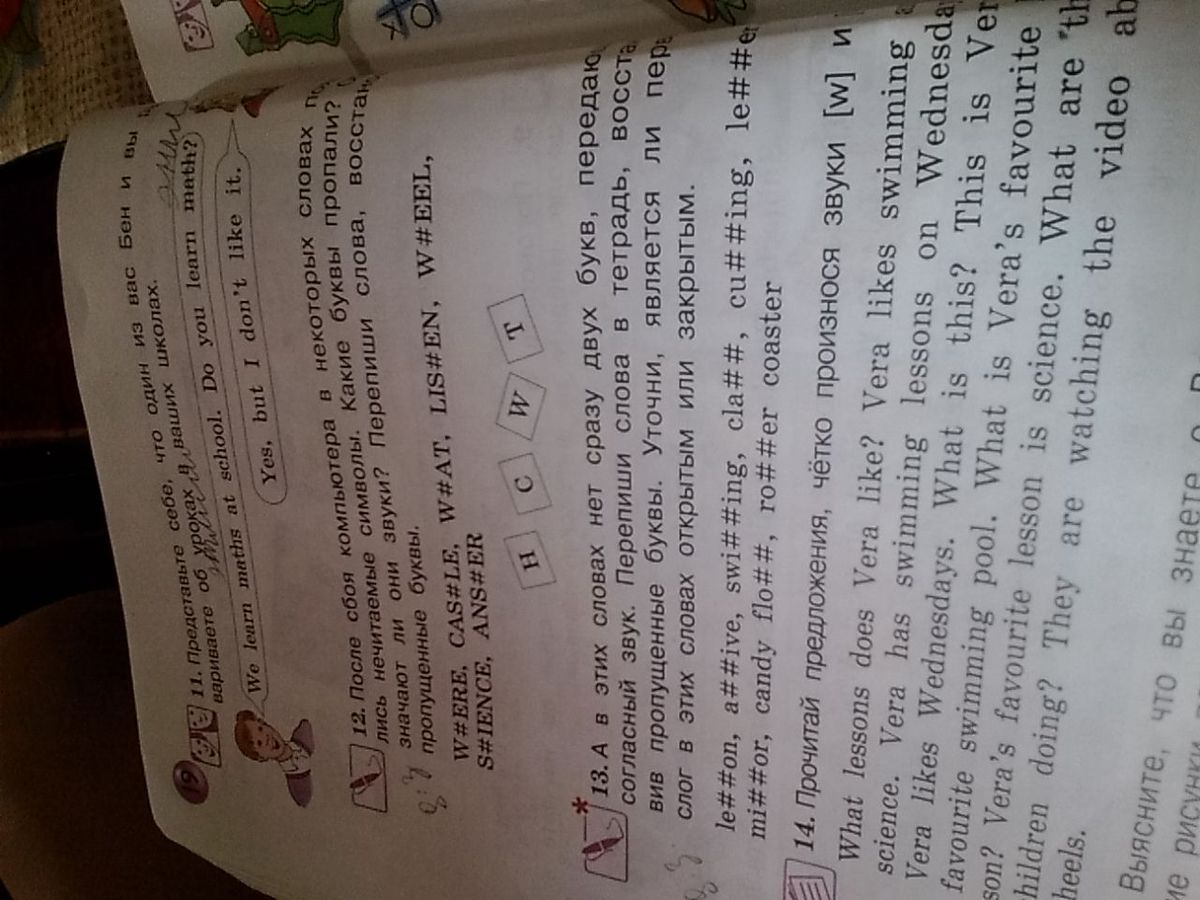 19
11. Представьте себе, что один из вас Бен и вы
вариваете об уроках в ваших школах.
We learn maths at school. Do you learn math?
Yes, but I don't like it.
12. После сбоя компьютера в некоторых словах
лись нечитаемые символы. Какие буквы пропали?
значают ли они звуки? Перепиши слова,
пропущенные буквы.
W#ERE, CAS#LE, W#AT, LIS#EN, W#EEL,
S#IENCE, ANS#ER
H C W T
*
13. А в этих словах нет сразу двух букв,
согласный звук. Перепиши слова в тетрадь,
вив пропущенные буквы. Уточни, является ли
слог в этих словах открытым или закрытым.
le##on, a##ive, swi##ing, cla##, cu##ing, le##e
mi##or, candy flo##, ro##er coaster
14. Прочитай предложения, чётко произнося звуки [w] и
What lessons does Vera like? Vera likes swimming
science. Vera has swimming lessons on
Vera likes Wednesdays. What is this? This is
favourite swimming pool. What is Vera's favourite
son? Vera's favourite lesson is science. What are
hildren doing? They are watching the video
heels.
Выясните, что вы знаете о
рисунки